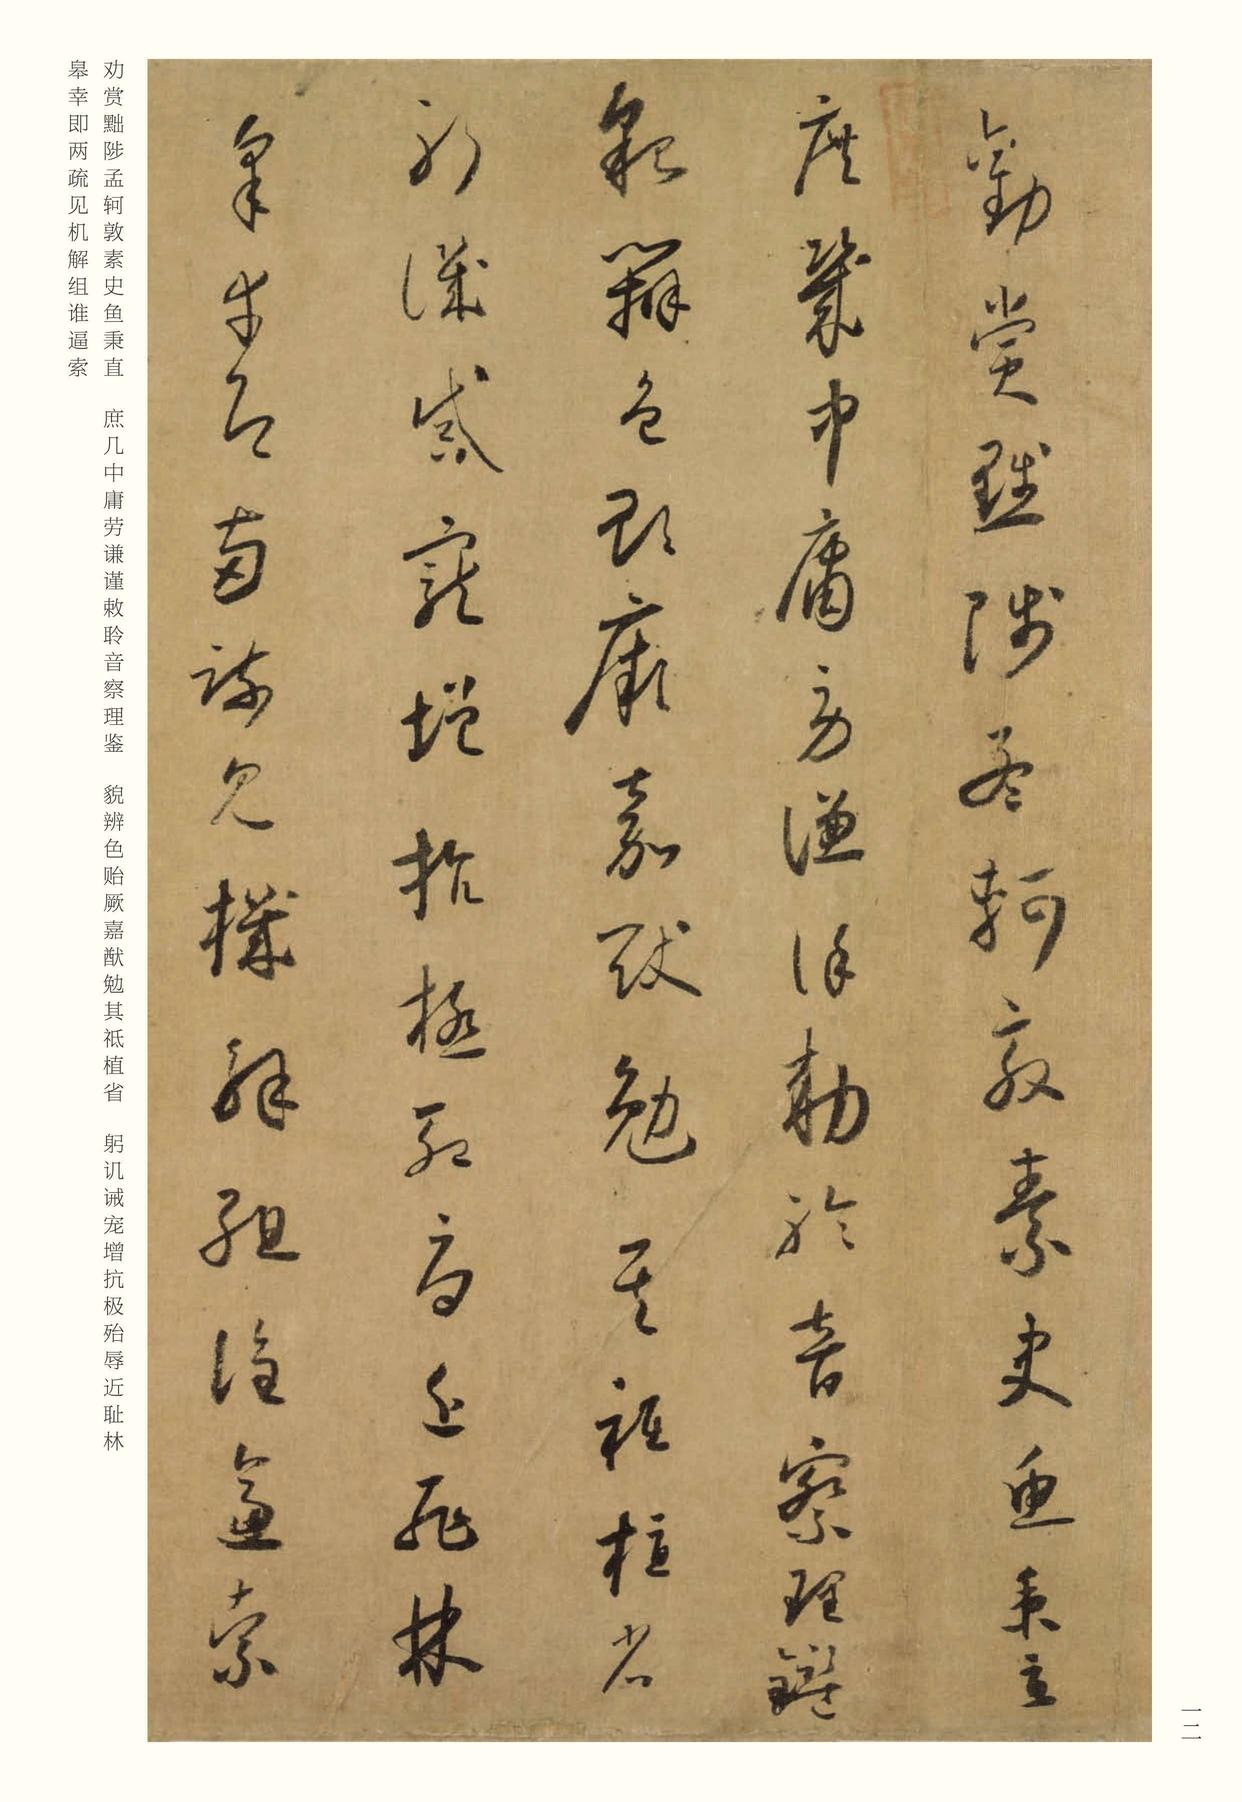 勸賞黜陟孟軻敦素史魚秉直
庶幾中庸勞謙謹勅聆音察理鑑
貌辨色貽厥嘉猷勉其祗植省
躬譏誡寵增抗極殆辱近恥林
皋幸即兩疏見機解組誰逼索
劝赏黜陟孟轲敦素史鱼秉直 庶几中庸劳谦谨敕聆音察理鉴 貌辨色贻厥嘉猷勉其祗植省 躬讥诫宠增抗极殆辱近耻林
皋幸即两疏见机解组谁逼索
一二